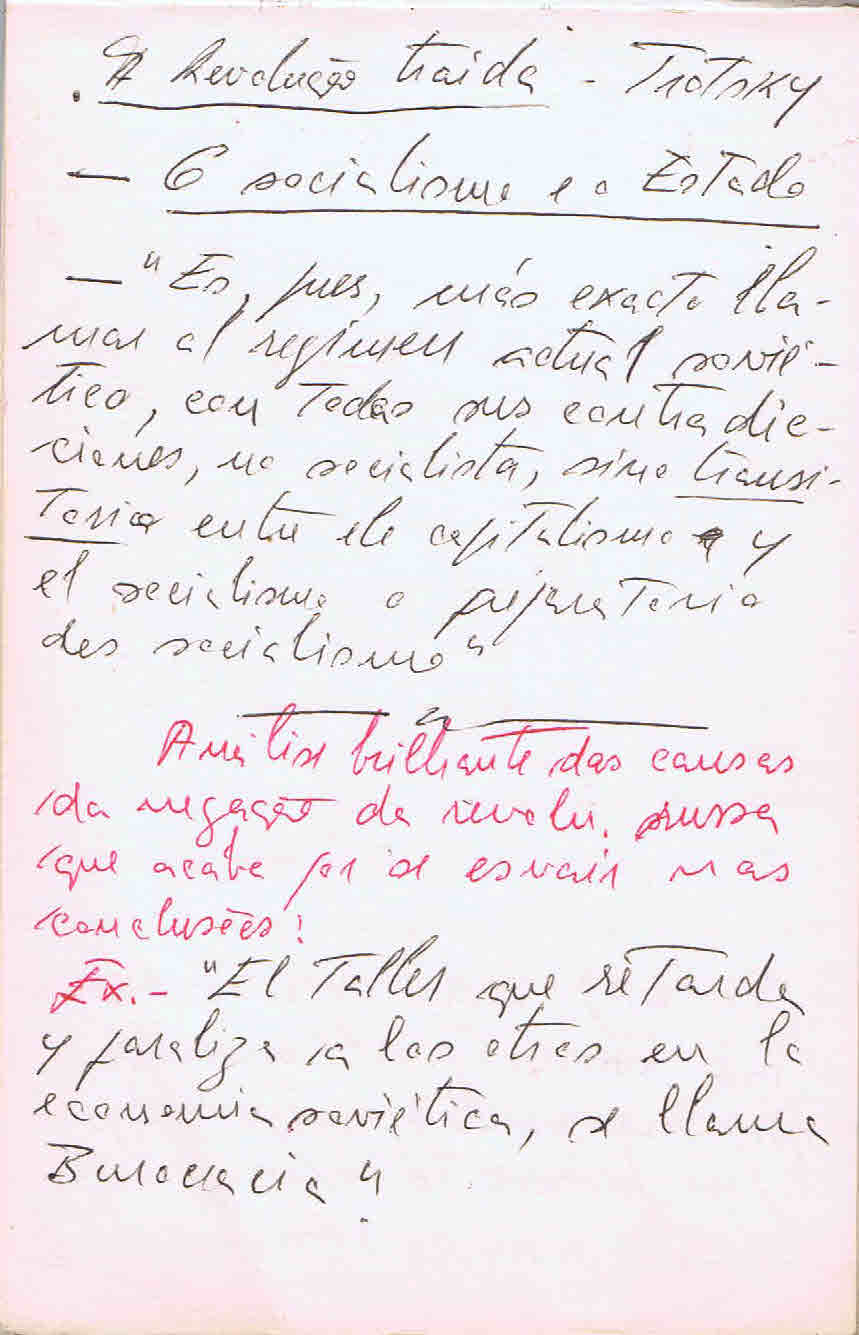 . A Revolução traida - Trotsky
— O socialismo e o Estado
— "Es, pues, más exacto lla-
mar al regimen actual sovié-
tico, con todas sus contradic-
ciones, no socialista, sino transi-
torio entre ele capitalismo y
el socialismo o preparatorio
des socialismo"
Análise brilhante das causas
da negação da revolu. russa
que acaba por se esvair nas
conclusões!
Ex.- "El Taller que retarda
y paraliza a los otros en la
economia soviética, se llama
Burocracia".